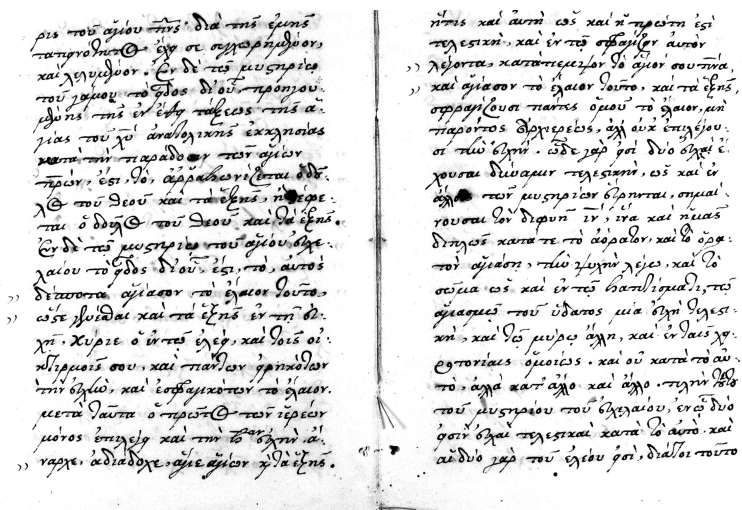 ρις τοῦ ἁγίου πν̅ς διὰ τῆς ἐμῆς
ταπεινότητος ἔχει σε συγκεχωρημένον,
καὶ λελυμένον. Ἐν δὲ τῷ μυστηρίῳ
τοῦ γάμου τὸ εἶδος δι' οὗ προηγου-
μένης τῆς ἐν τάξεως τῆς ἁ-
γίας τοῦ χυ̅ ἀνατολικῆς ἐκκλησίας
κατὰ τὴν παράδοσιν τῶν ἁγίων
πρ̅ων, ἐστὶ, τὸ, ἀρραβωνίζεται ὁ δοῦ-
λος τοῦ θεοῦ καὶ τὰ ἑξῆς, ἢ στέφε-
ται ὁ δοῦλος τοῦ θεοῦ καὶ τὰ ἑξῆς.
Ἐν δὲ τῷ μυστηρίῳ τοῦ ἁγίου εὐχε-
λαίου τὸ εἶδος δι' οὗ, ἐστὶ, τὸ, αὐτὸς
δέσποτα ἁγίασον τὸ ἔλαιον τοῦτο,
ὥστε γενέσθαι καὶ τὰ ἑξῆς ἐν τῇ εὐ-
χῇ, κύριε ὁ ἐν τῷ ἐλέει, καὶ τοῖς οἰ-
κτιρμοῖς σου, καὶ πάντων εἰρηκότων
τὴν εὐχὴν, καὶ ἐσφραγικότων τὸ ἔλαιον.
μετὰ ταῦτα ὁ πρῶτος τῶν ἱερέων
μόνος ἐπιλέγει καὶ τὴν εὐχὴν ἄ-
ναρχε, ἀδιάδοχε, ἅγιε ἁγίων κ̀ τὰ ἑξῆς.
ἥτις καὶ αὐτὴ ὡς καὶ ἡ πρώτη ἐστὶ
τελεστικὴ, καὶ ἐν τῷ σφραγίζειν αὐτὸν
λέγοντα, κατάπεμψον τὸ ἅγιόν σου πνα̅,
καὶ ἁγίασον τὸ ἔλαιον τοῦτο, καὶ τὰ ἑξῆς,
σφραγίζουσι πάντες ὁμοῦ τὸ ἔλαιον, μὴ
παρόντος ἀρχιερέως, ἀλλ' οὐκ ἐπιλέγου-
σι τὴν εὐχήν. ὧδε γὰρ εἰσὶ δύο εὐχαὶ ἔ-
χουσαι δύναμιν τελεστικὴν, ὡς καὶ ἐν
ἄλλοις τῶν μυστηρίων εὕρηνται, σημαί-
νουσαι τὸν διφυῆ ιν̅, ἵνα καὶ ἡμᾶς
διπλῶς κατά τε τὸ ἀόρατον, καὶ τὸ ὁρα-
τὸν ἁγιάσῃ, τὴν ψυχὴν λέγω, καὶ τὸ
σῶμα ὡς καὶ ἐν τῷ βαπτίσματι, τῷ
ἁγιασμῷ τοῦ ὕδατος μία εὐχὴ τελεστι-
κὴ, καὶ τῷ μύρῳ ἄλλη, καὶ ἐν ταῖς χει-
ροτονίαις ὁμοίως. καὶ οὐ κατὰ τὸ αὐ-
τὸ, ἀλλὰ κατ' ἄλλο καὶ ἄλλο. πλὴν
τοῦ μυστηρίου τοῦ εὐχελαίου, ἐν ᾧ δύο
εἰσὶν εὐχαὶ τελεστικαὶ κατὰ τὸ αὐτὸ. καὶ
αἱ δύο γὰρ τοῦ ἐλέου εἰσὶ, διατί τοῦτο